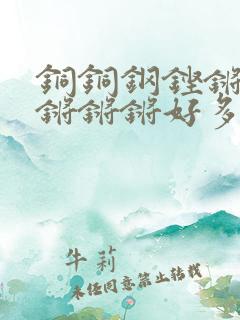 銅銅鋼鏗鏘
鏘鏘鏘好多
牛莉
未经同意禁止转载